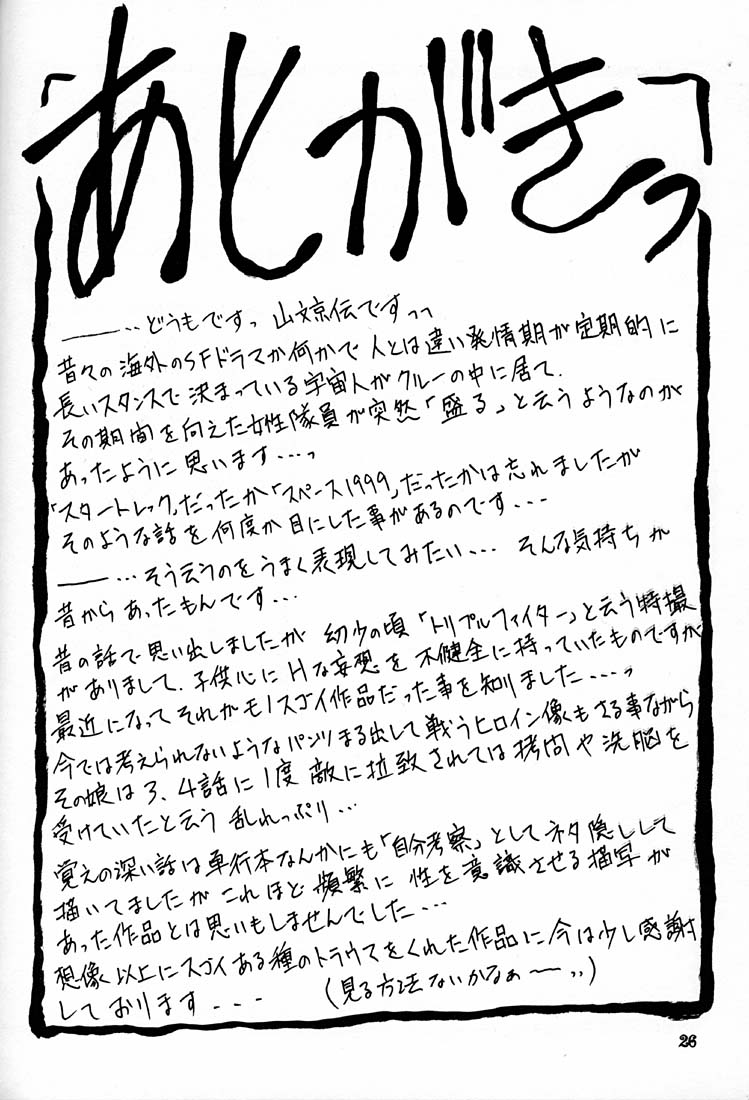 あとがきっ
――‥どうもですっ 山文京伝ですっっ
昔々の海外のSFドラマか何かで人とは違い発情期が定期的に
長いスタンスで決まっている宇宙人がクルーの中に居て、
その期間を向えた女性隊員が突然「盛る」と云うようなのが
あったように思います…っ
「スタートレック」だったか「スペース1999」だったかは忘れましたが
そのような話を何度か目にした事があるのです…
――…そう云うのをうまく表現してみたい… そんな気持ちが
昔からあったもんです…
昔の話で思い出しましたが 幼少の頃「トリプルファイター」と云う特撮
がありまして、子供心にHな妄想を不健全に持っていたものですが
最近になってそれがモノスゴイ作品だった事を知りました…っ
今では考えられないようなパンツまる出しで戦うヒロイン像もさる事ながら
その娘は3、4話に1度 敵に拉致されては拷問や洗脳を
受けていたと云う 乱れっぷり…
覚えの深い話は単行本なんかにも「自分考察」としてネタ隠しして
描いてましたが これほど頻繁に 性を意識させる描写が
あった作品とは思いもしませんでした…
想像以上にスゴイある種のトラウマをくれた作品に今は少し感謝
しております… (見る方法ないかなぁ――ッ)
26